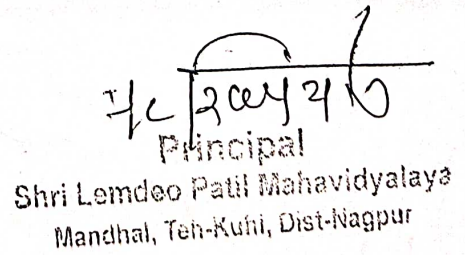 Principal
Shri Lemdeo Patil Mahavidyalaya
Mandhal, Teh-Kuhi, Dist-Nagpur